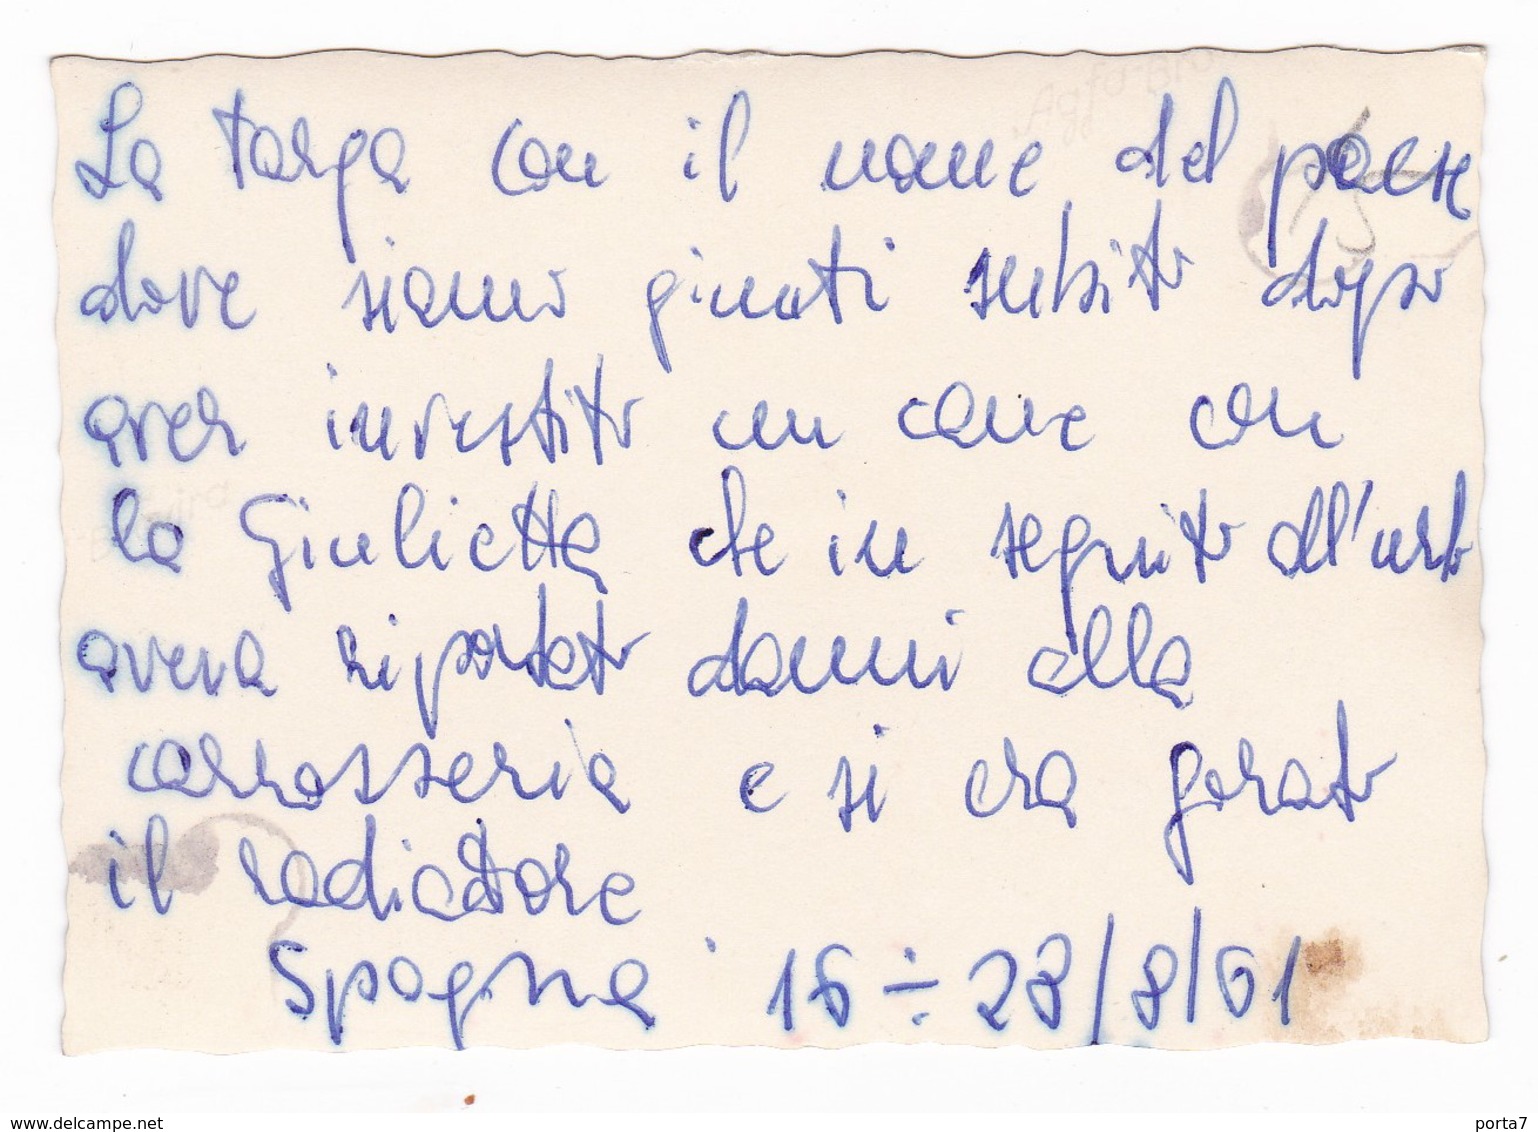 La targa con il nome del paese
dove siamo giunti subito dopo
aver investito un cane con
la Giulietta che in seguito all'urto
aveva riportato danni alla
carrosseria e si era forato
il radiatore
Spagna 16 ÷ 28/8/61
www.delcampe.net
porta7